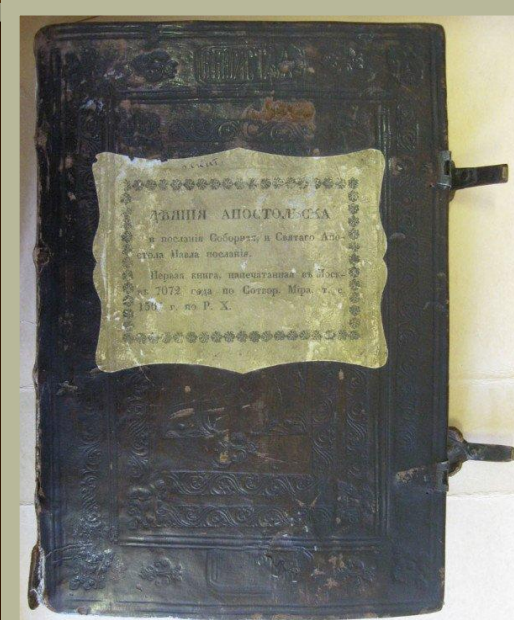 ДѢЯНІЯ АПОСТОЛЬСКА
и посланія Соборная, и Святаго Апо-
стола Павла посланія.
Первая книга, напечатанная въ Моск-
вѣ 7072 года по Сотвор. Міра, т. е.
г. по Р. Х.